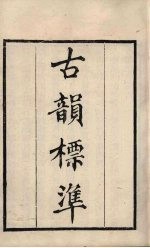 古韻標準